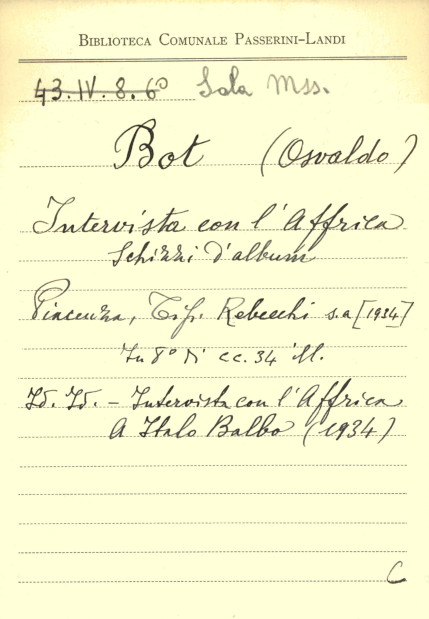 BIBLIOTECA COMUNALE PASSERINI-LANDI
43.IV.8.6º Sala Mss.
Bot (Osvaldo)
Intervista con l'Affrica
Schizzi d'album
Piacenza, Tip. Rebecchi s.a [1934]
In 8º di cc. 34 ill.
Id. Id. - Intervista con l'Affrica
A Italo Balbo (1934)
C